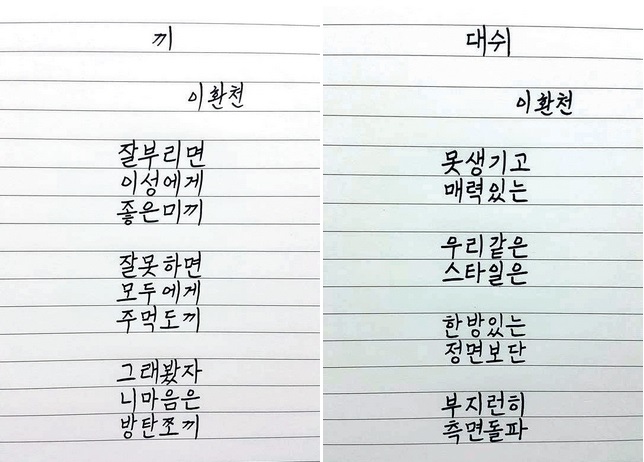 끼
이환천
잘부리면
이성에게
좋은미끼
잘못하면
모두에게
주먹도끼
그래봤자
니마음은
방탄쪼끼
대쉬
이환천
못생기고
매력있는
우리같은
스타일은
한방있는
정면보단
부지런히
측면돌파